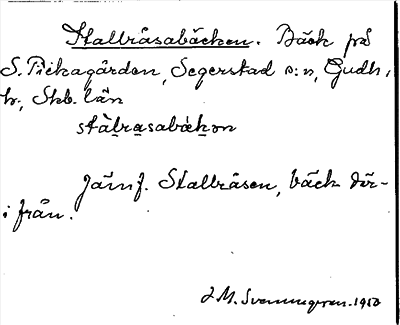 Stallråsabäcken. Bäck på
S. Pickagården, Segerstad s:n, Gudh.
h., Skb. län
stàlrasabäkən
Jämf. Stallråsen, bäck där-
ifrån.
J. M. Svenungsson. 1910